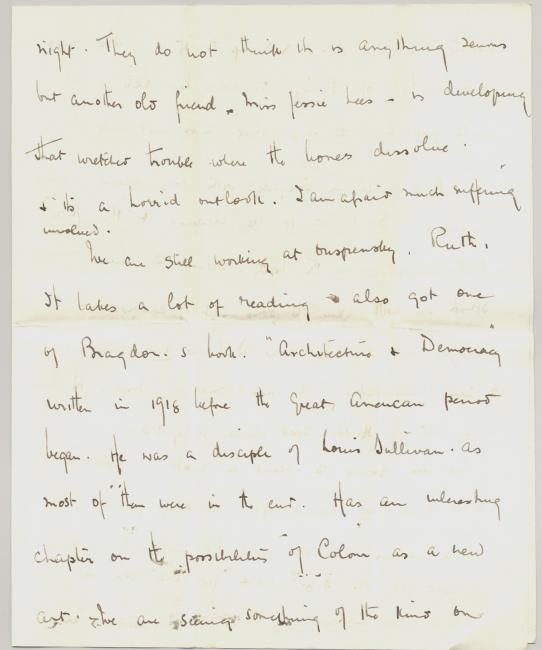 night. They do not think it is anything serious
but another old friend, Miss Jessie Lees - is developing
that wretched trouble where the bones dissolve.
& it's a horrid outlook. I am afraid much suffering
involved.
We are still working at Ouspensky. Ruth.
It takes a lot of reading also got one
of Bragdon.s book. "Architecture & Democracy"
written in 1918 before the Great American period
began. He was a disciple of Louis Sullivan. as
most of them were in the end. Has an interesting
chapter on the possibilities "of Colour" as a new
art. We are seeing something of the kind on